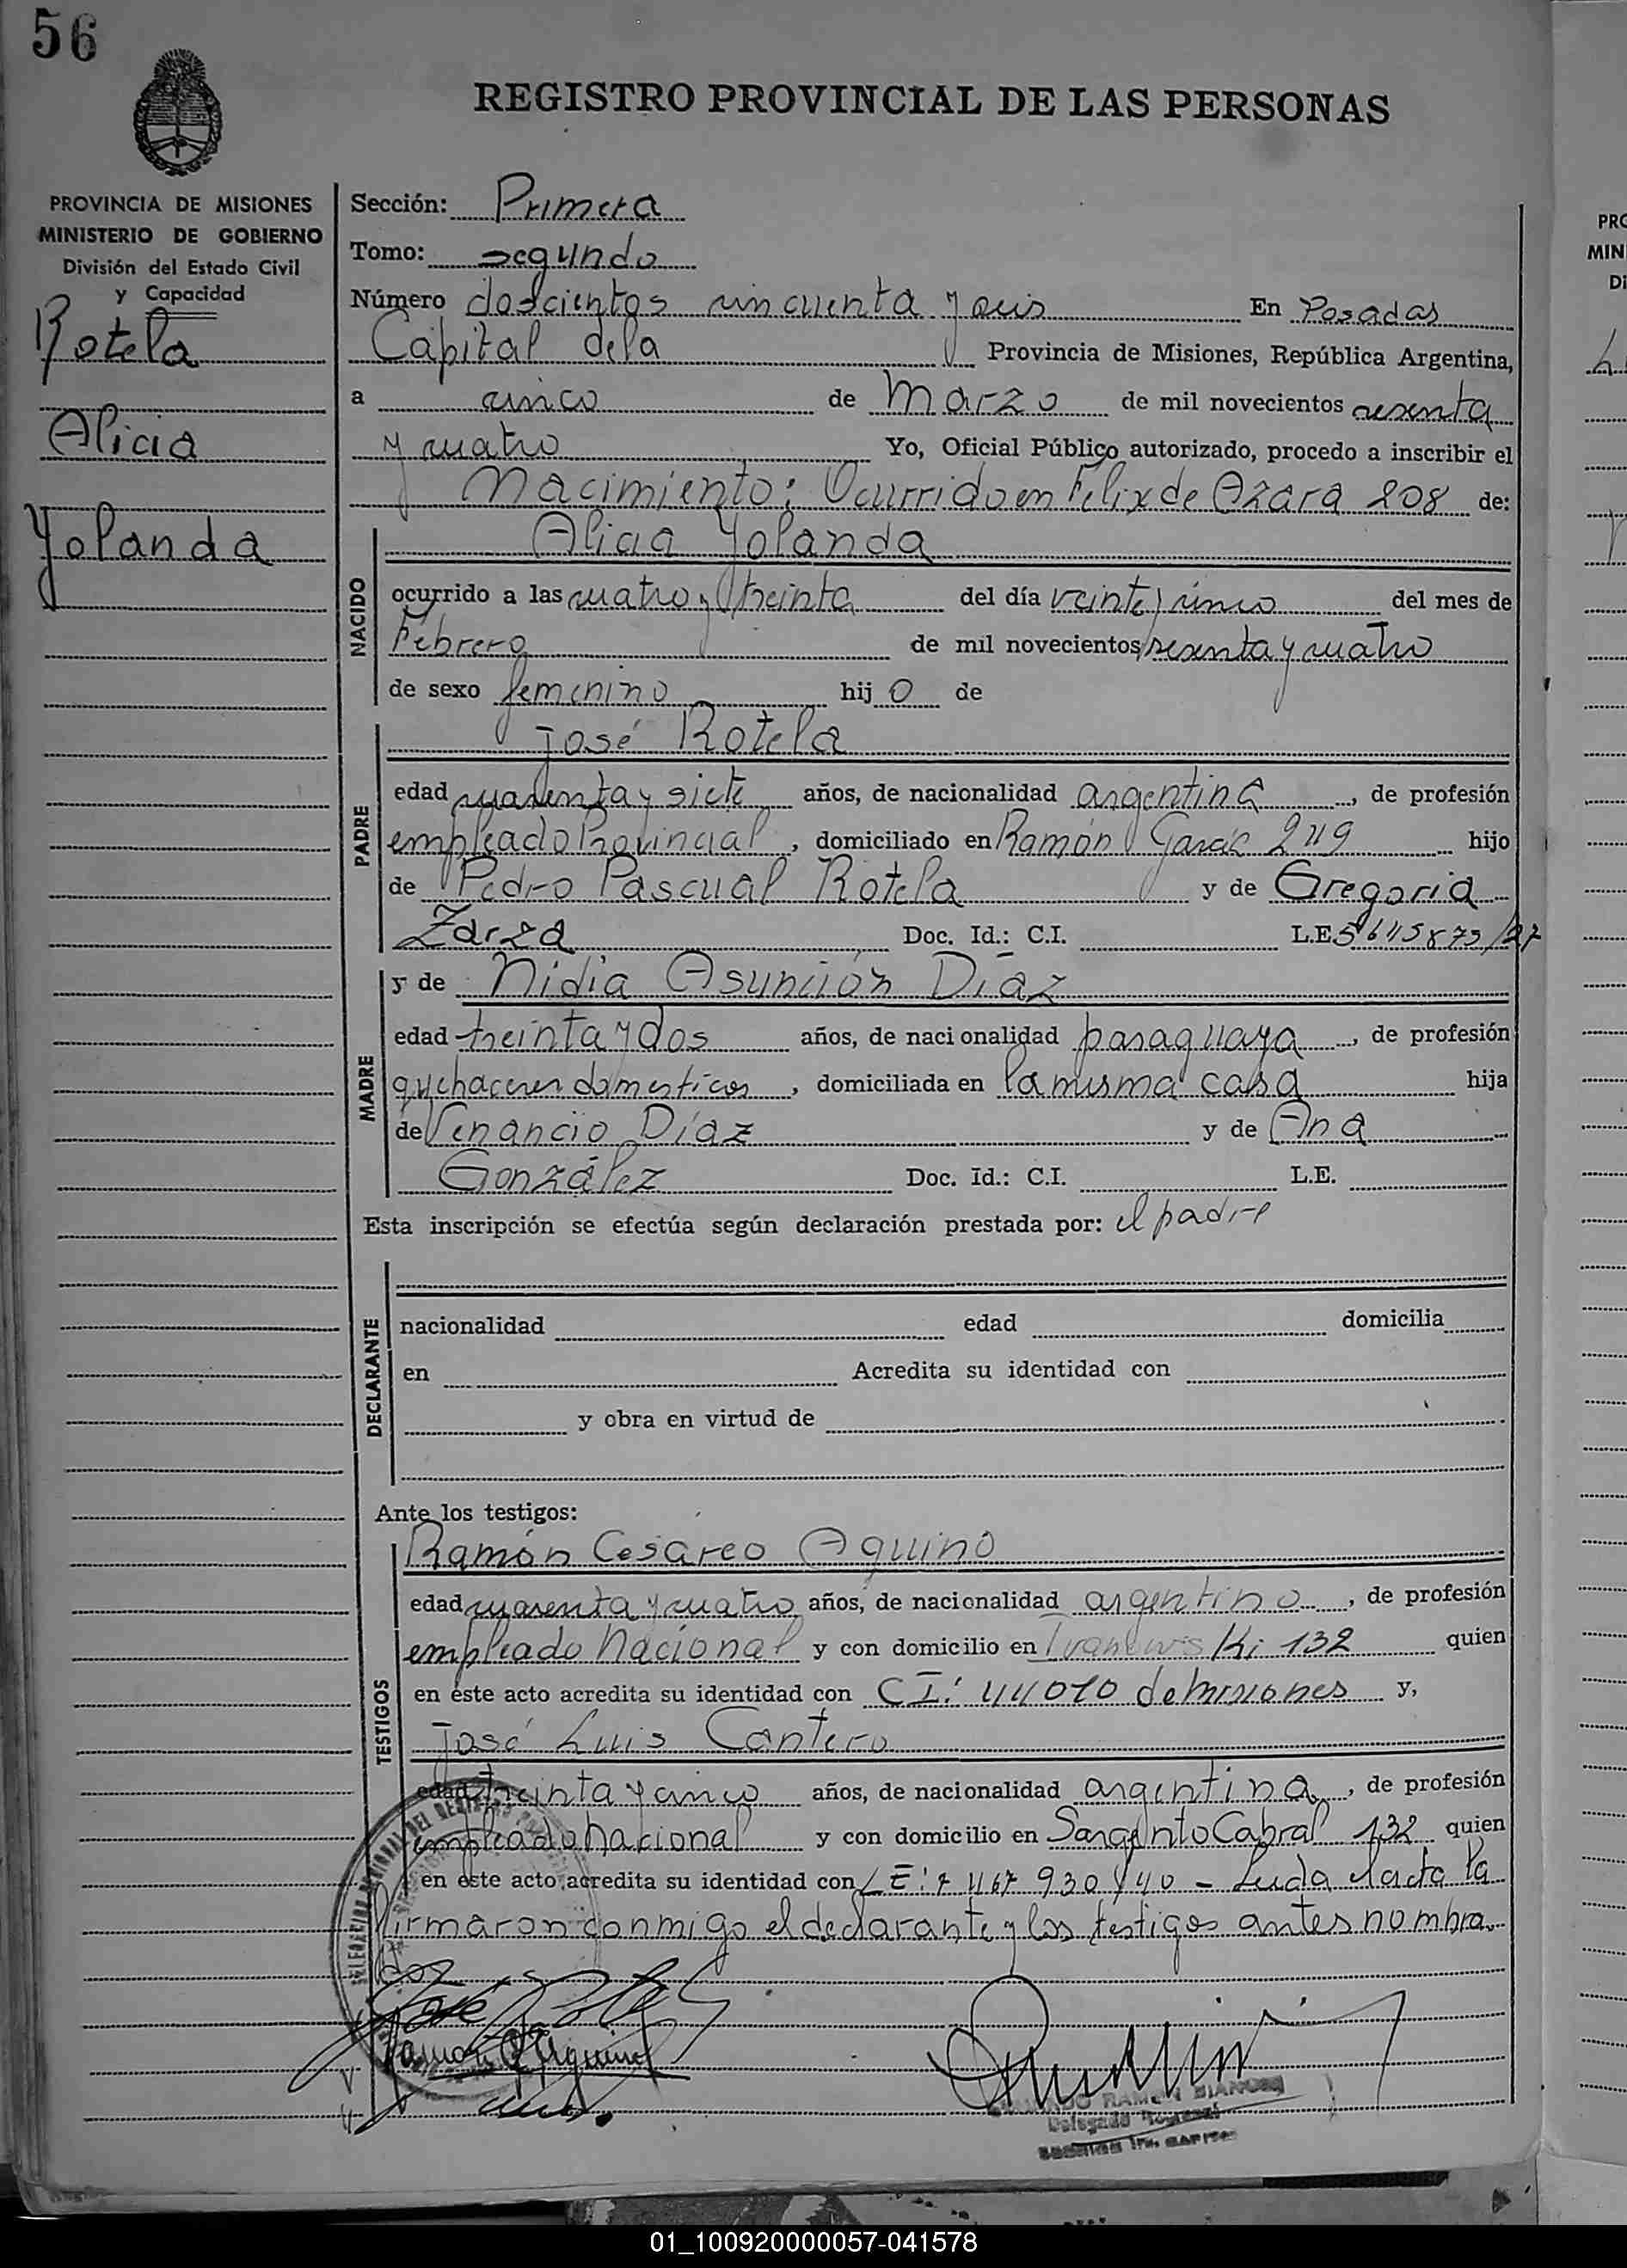 56
REGISTRO PROVINCIAL DE LAS PERSONAS
PROVINCIA DE MISIONES
MINISTERIO DE GOBIERNO
División del Estado Civil
y Capacidad
Rotela
Alicia
Yolanda
Sección: Primera
Tomo: segundo
Número doscientos cincuenta y seis En Posadas
Capital de la Provincia de Misiones, República Argentina,
a cinco de Marzo de mil novecientos sesenta
y cuatro Yo, Oficial Público autorizado, procedo a inscribir el
Nacimiento: Ocurrido en Felix de Azara 208 de:
NACIDO
Alicia Yolanda
ocurrido a las cuatro y treinta del día veinte y cinco del mes de
Febrero de mil novecientos sesenta y cuatro
de sexo femenino hij o de
PADRE
José Rotela
edad cuarenta y siete años, de nacionalidad argentina, de profesión
empleado Provincial, domiciliado en Ramón García 249 hijo
de Pedro Pascual Rotela y de Gregoria
Zarza Doc. Id.: C.I. L.E.
MADRE
y de Nidia Asunción Díaz
edad treinta y dos años, de naci onalidad paraguaya, de profesión
quehaceres domesticos, domiciliada en la misma casa hija
de Venancio Díaz y de Ana
González Doc. Id.: C.I. L.E.
Esta inscripción se efectúa según declaración prestada por: el padre
DECLARANTE
nacionalidad edad domicilia
en Acredita su identidad con
y obra en virtud de
Ante los testigos:
TESTIGOS
Ramón Cesáreo Aquino
edad cuarenta y cuatro años, de nacionalidad argentino, de profesión
empleado Nacional y con domicilio en 132 quien
en este acto acredita su identidad con CI: 44010 de misiones y,
José Luis Cantero
edad treinta y cinco años, de nacionalidad argentina, de profesión
empleado Nacional y con domicilio en Sargento Cabral 132 quien
en este acto acredita su identidad con LE: 7 467 930 y 40 - Leida el acta la
firmaron conmigo el declarante y los testigos antes nombra
dos
José Rotela
Ramón Aquino
RAMON BIANCHI
Delegado
01_100920000057-041578